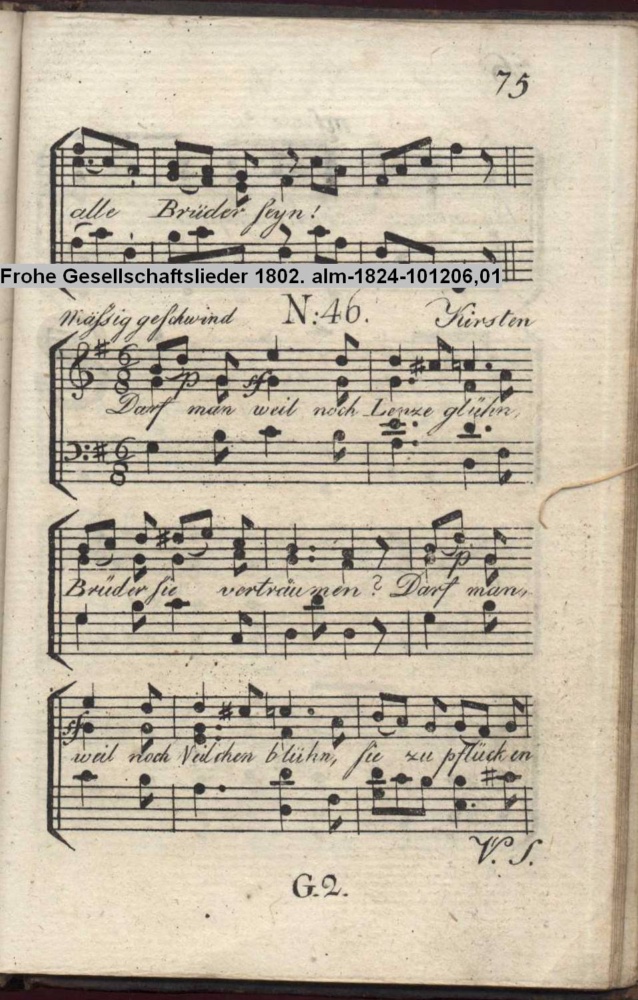 75
alle Brüder seyn!
Frohe Gesellschaftslieder 1802. alm-1824-101206,01
Mässig geschwind N:46. Kirsten
p sf
Darf man weil noch Lenze glühn,
p
Brüder sie verträumen? Darf man,
sf
weil noch Veilchen blühn, sie zu pflücken
V. S.
G.2.